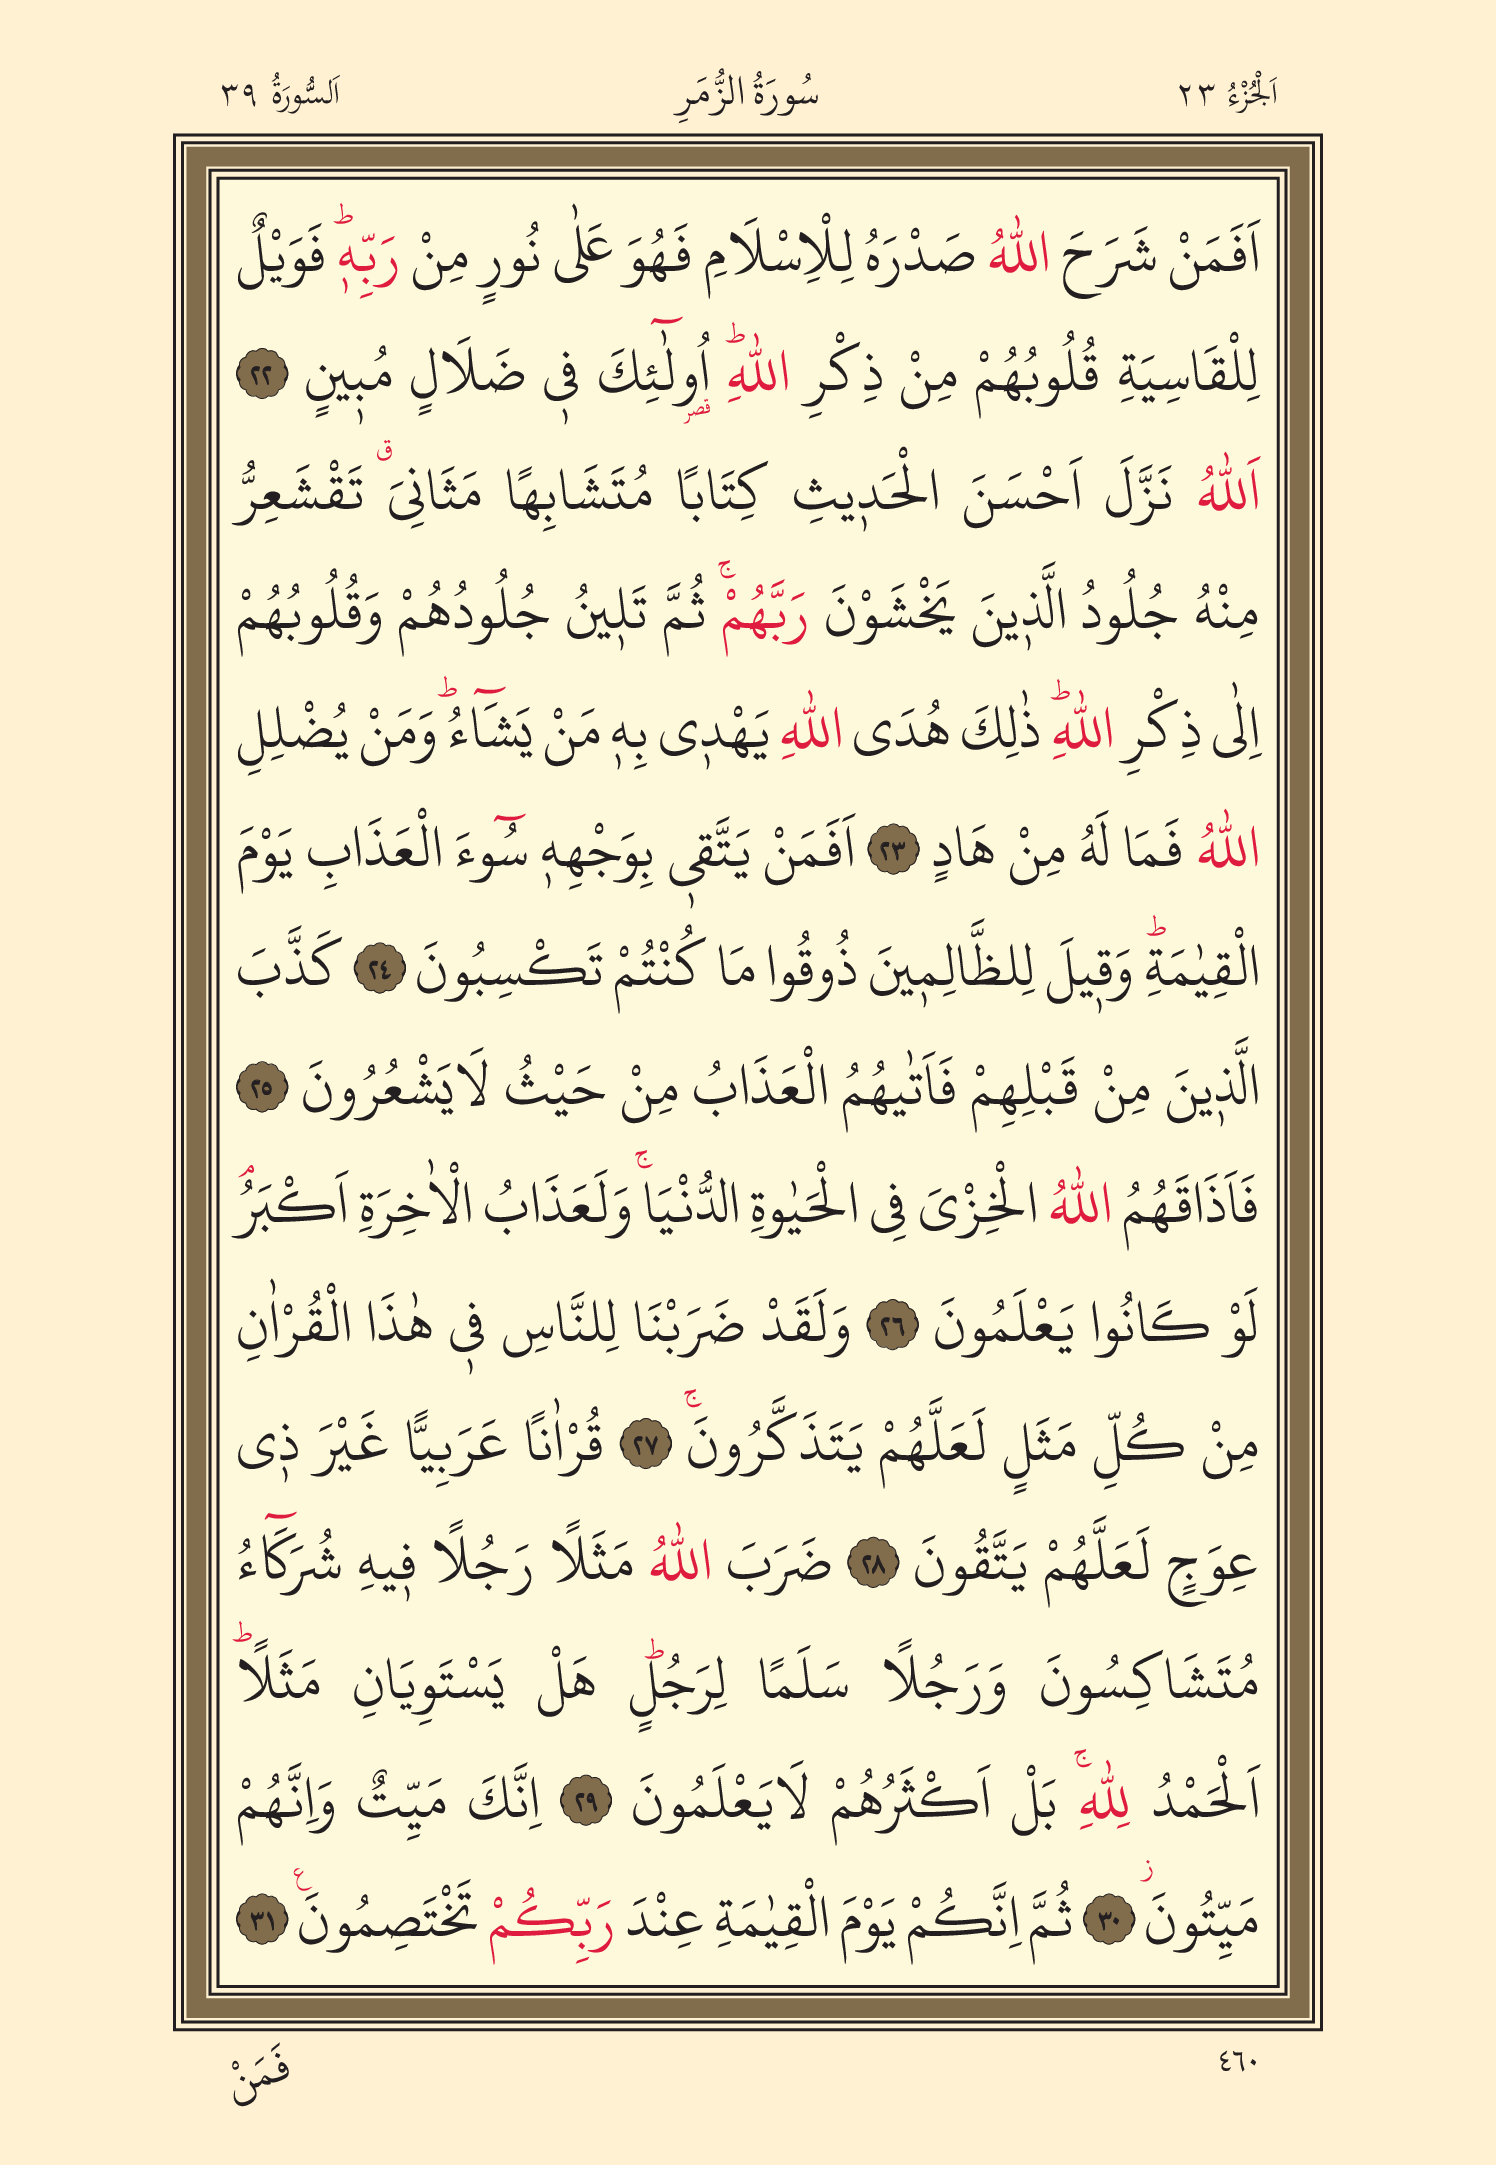 اَلْجُزْءُ ٢٣ سُورَةُ الزُّمَرِ اَلسُّورَةُ ٣٩
اَفَمَنْ شَرَحَ اللّٰهُ صَدْرَهُ لِلْاِسْلَامِ فَهُوَ عَلٰى نُورٍ مِنْ رَبِّه۪ۜ فَوَيْلٌ
لِلْقَاسِيَةِ قُلُوبُهُمْ مِنْ ذِكْرِ اللّٰهِۜ اُو۬لٰٓئِكَ ف۪ي ضَلَالٍ مُب۪ينٍ ﴿٢٢﴾
اَللّٰهُ نَزَّلَ اَحْسَنَ الْحَد۪يثِ كِتَابًا مُتَشَابِهًا مَثَانِيَۗ تَقْشَعِرُّ
مِنْهُ جُلُودُ الَّذ۪ينَ يَخْشَوْنَ رَبَّهُمْۚ ثُمَّ تَل۪ينُ جُلُودُهُمْ وَقُلُوبُهُمْ
اِلٰى ذِكْرِ اللّٰهِۜ ذٰلِكَ هُدَى اللّٰهِ يَهْد۪ي بِه۪ مَنْ يَشَٓاءُۜ وَمَنْ يُضْلِلِ
اللّٰهُ فَمَا لَهُ مِنْ هَادٍ ﴿٢٣﴾ اَفَمَنْ يَتَّق۪ي بِوَجْهِه۪ سُٓوءَ الْعَذَابِ يَوْمَ
الْقِيٰمَةِۜ وَق۪يلَ لِلظَّالِم۪ينَ ذُوقُوا مَا كُنْتُمْ تَكْسِبُونَ ﴿٢٤﴾ كَذَّبَ
الَّذ۪ينَ مِنْ قَبْلِهِمْ فَاَتٰيهُمُ الْعَذَابُ مِنْ حَيْثُ لَا يَشْعُرُونَ ﴿٢٥﴾
فَاَذَاقَهُمُ اللّٰهُ الْخِزْيَ فِي الْحَيٰوةِ الدُّنْيَاۚ وَلَعَذَابُ الْاٰخِرَةِ اَكْبَرُۢ
لَوْ كَانُوا يَعْلَمُونَ ﴿٢٦﴾ وَلَقَدْ ضَرَبْنَا لِلنَّاسِ ف۪ي هٰذَا الْقُرْاٰنِ
مِنْ كُلِّ مَثَلٍ لَعَلَّهُمْ يَتَذَكَّرُونَۚ ﴿٢٧﴾ قُرْاٰنًا عَرَبِيًّا غَيْرَ ذ۪ي
عِوَجٍ لَعَلَّهُمْ يَتَّقُونَ ﴿٢٨﴾ ضَرَبَ اللّٰهُ مَثَلًا رَجُلًا ف۪يهِ شُرَكَٓاءُ
مُتَشَاكِسُونَ وَرَجُلًا سَلَمًا لِرَجُلٍۜ هَلْ يَسْتَوِيَانِ مَثَلًاۜ
اَلْحَمْدُ لِلّٰهِۚ بَلْ اَكْثَرُهُمْ لَا يَعْلَمُونَ ﴿٢٩﴾ اِنَّكَ مَيِّتٌ وَاِنَّهُمْ
مَيِّتُونَۘ ﴿٣٠﴾ ثُمَّ اِنَّكُمْ يَوْمَ الْقِيٰمَةِ عِنْدَ رَبِّكُمْ تَخْتَصِمُونَ۟ ﴿٣١﴾
٤٦٠ فَمَنْ